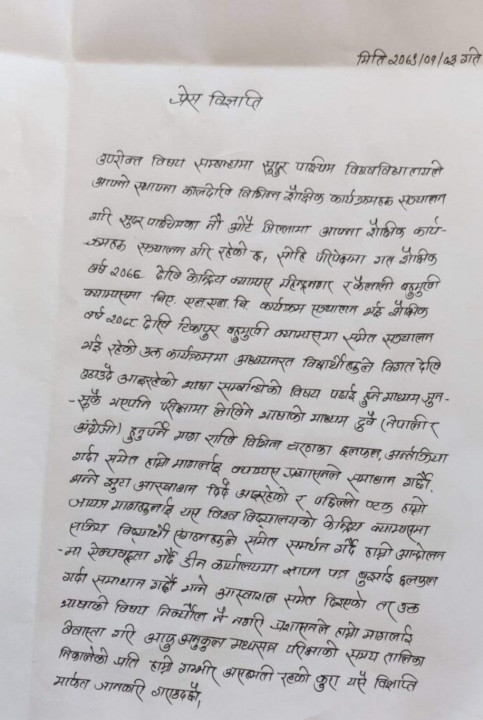 मिति २०७९/०९/०३ गते
प्रेस विज्ञप्ति
उपरोक्त विषय सम्बन्धमा सुदूर पाश्चिम विश्वविद्यालयले
आफ्नो स्थापना कालदेखि विभिन्न शैक्षिक कार्यक्रमहरू सञ्चालन
गरि सुदूर पाश्चिमका नौ ओटै जिल्लामा आफ्ना शैक्षिक कार्य-
क्रमहरू सञ्चालन गरि रहेको छ, सोहि परिपेक्षमा गत शैक्षिक
बर्ष २०७६ देखि केन्द्रिय क्याम्पस महेन्द्रनगर र कैलाली बहुमुखी
क्याम्पसमा बिए. एल.एल. बि. कार्यक्रम सञ्चालन भई शैक्षिक
बर्ष २०७८ देखि टिकापुर बहुमुखी क्याम्पसमा समेत सञ्चालन
भई रहेको उक्त कार्यक्रममा अध्ययनरत विद्यार्थीहरुले विगत देखि
उठाउदै आइरहेको भाषा सम्बन्धिको विषय पढाई हुने माध्यम जुन-
-सुकै भएपनि परिक्षामा लेखिने भाषाको माध्यम दुवै (नेपाली र
अंग्रेजी) हुनुपर्ने माग राखि विभिन्न चरणका छलफल, अन्तर्क्रिया
गर्दा समेत हाम्रो मागलाई क्याम्पस प्रशासनले समाधान गर्छौं,
भन्ने झुटा आस्वाशन दिदै आइरहेको र पछिल्लो पटक हाम्रो
जायज मागहरुलाई यस विश्व विद्यालयको केन्द्रिय क्याम्पसमा
सक्रिय विद्यार्थी संगठनहरुले समेत समर्थन गर्दै हाम्रो आन्दोलन
-मा ऐक्यवद्धता गर्दै डीन कार्यालयमा ज्ञापन पत्र बुझाई छलफल
गर्दा समाधान गर्छौं भने आस्वाशन समेत दिएको तर उक्त
भाषाको विषय निर्क्यौल नै नगरि प्रशासनले हाम्रो मागलाई
वेवास्ता गरि आफु अनुकुल मध्यसत्र परिक्षाको समय तालिका
निकालेको प्रति हाम्रो गम्भीर असहमती रहेको कुरा यसै विज्ञप्ति
मार्फत जानकारी गराउदछौं,